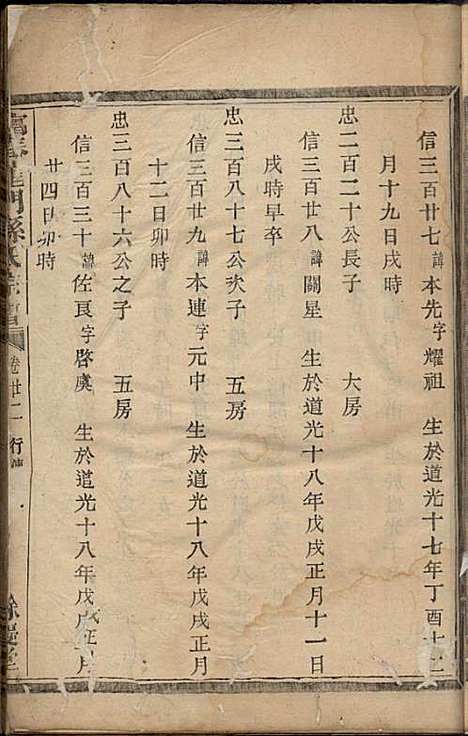 信三百廿七諱本先字耀祖　生於道光十七年丁酉十二
月十九日戌時
忠二百二十公長子　大房
信三百廿八諱關星　生於道光十八年戊戌正月十一日
戌時早卒
忠三百八十七公次子　五房
信三百廿九諱本連字元中　生於道光十八年戊戌正月
十二日卯時
忠三百八十六公之子　五房
信三百三十諱佐良字啓虞　生於道光十八年戊戌正月
廿四日卯時
龍門孫氏宗譜　卷廿二　行傳
餘慶堂